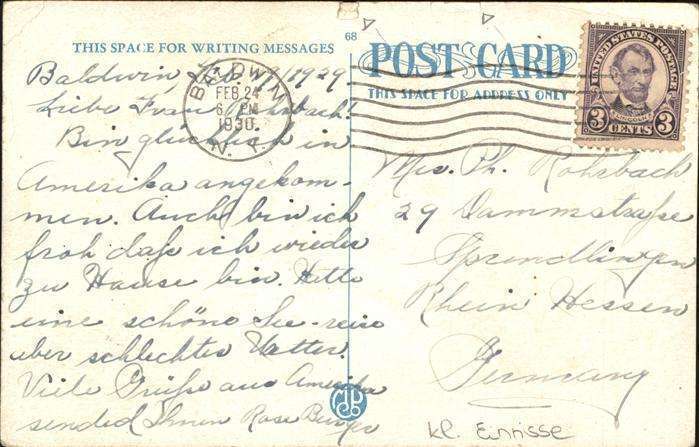 THIS SPACE FOR WRITING MESSAGES
68
POST CARD
THIS SPACE FOR ADDRESS ONLY
UNITED STATES POSTAGE
LINCOLN
3 CENTS 3
BALDWIN
FEB 24
6 PM
1930
N. Y.
Baldwin, Feb 1929
Liebe Frau Rohrbach!
Bin glücklich in
Amerika angekom-
men. Auch bin ich
froh daße ich wieder
zu Hause bin. Hatte
eine schöne See-reise
aber schlechtes Wetter.
Viele Grüße aus Amerika
sended Ihnen Rose Berger
Mrs. Ph. Rohsbach
29 Dammstraße
Sprendlingen
Rhein Hessen
Germany
kl. Einrisse